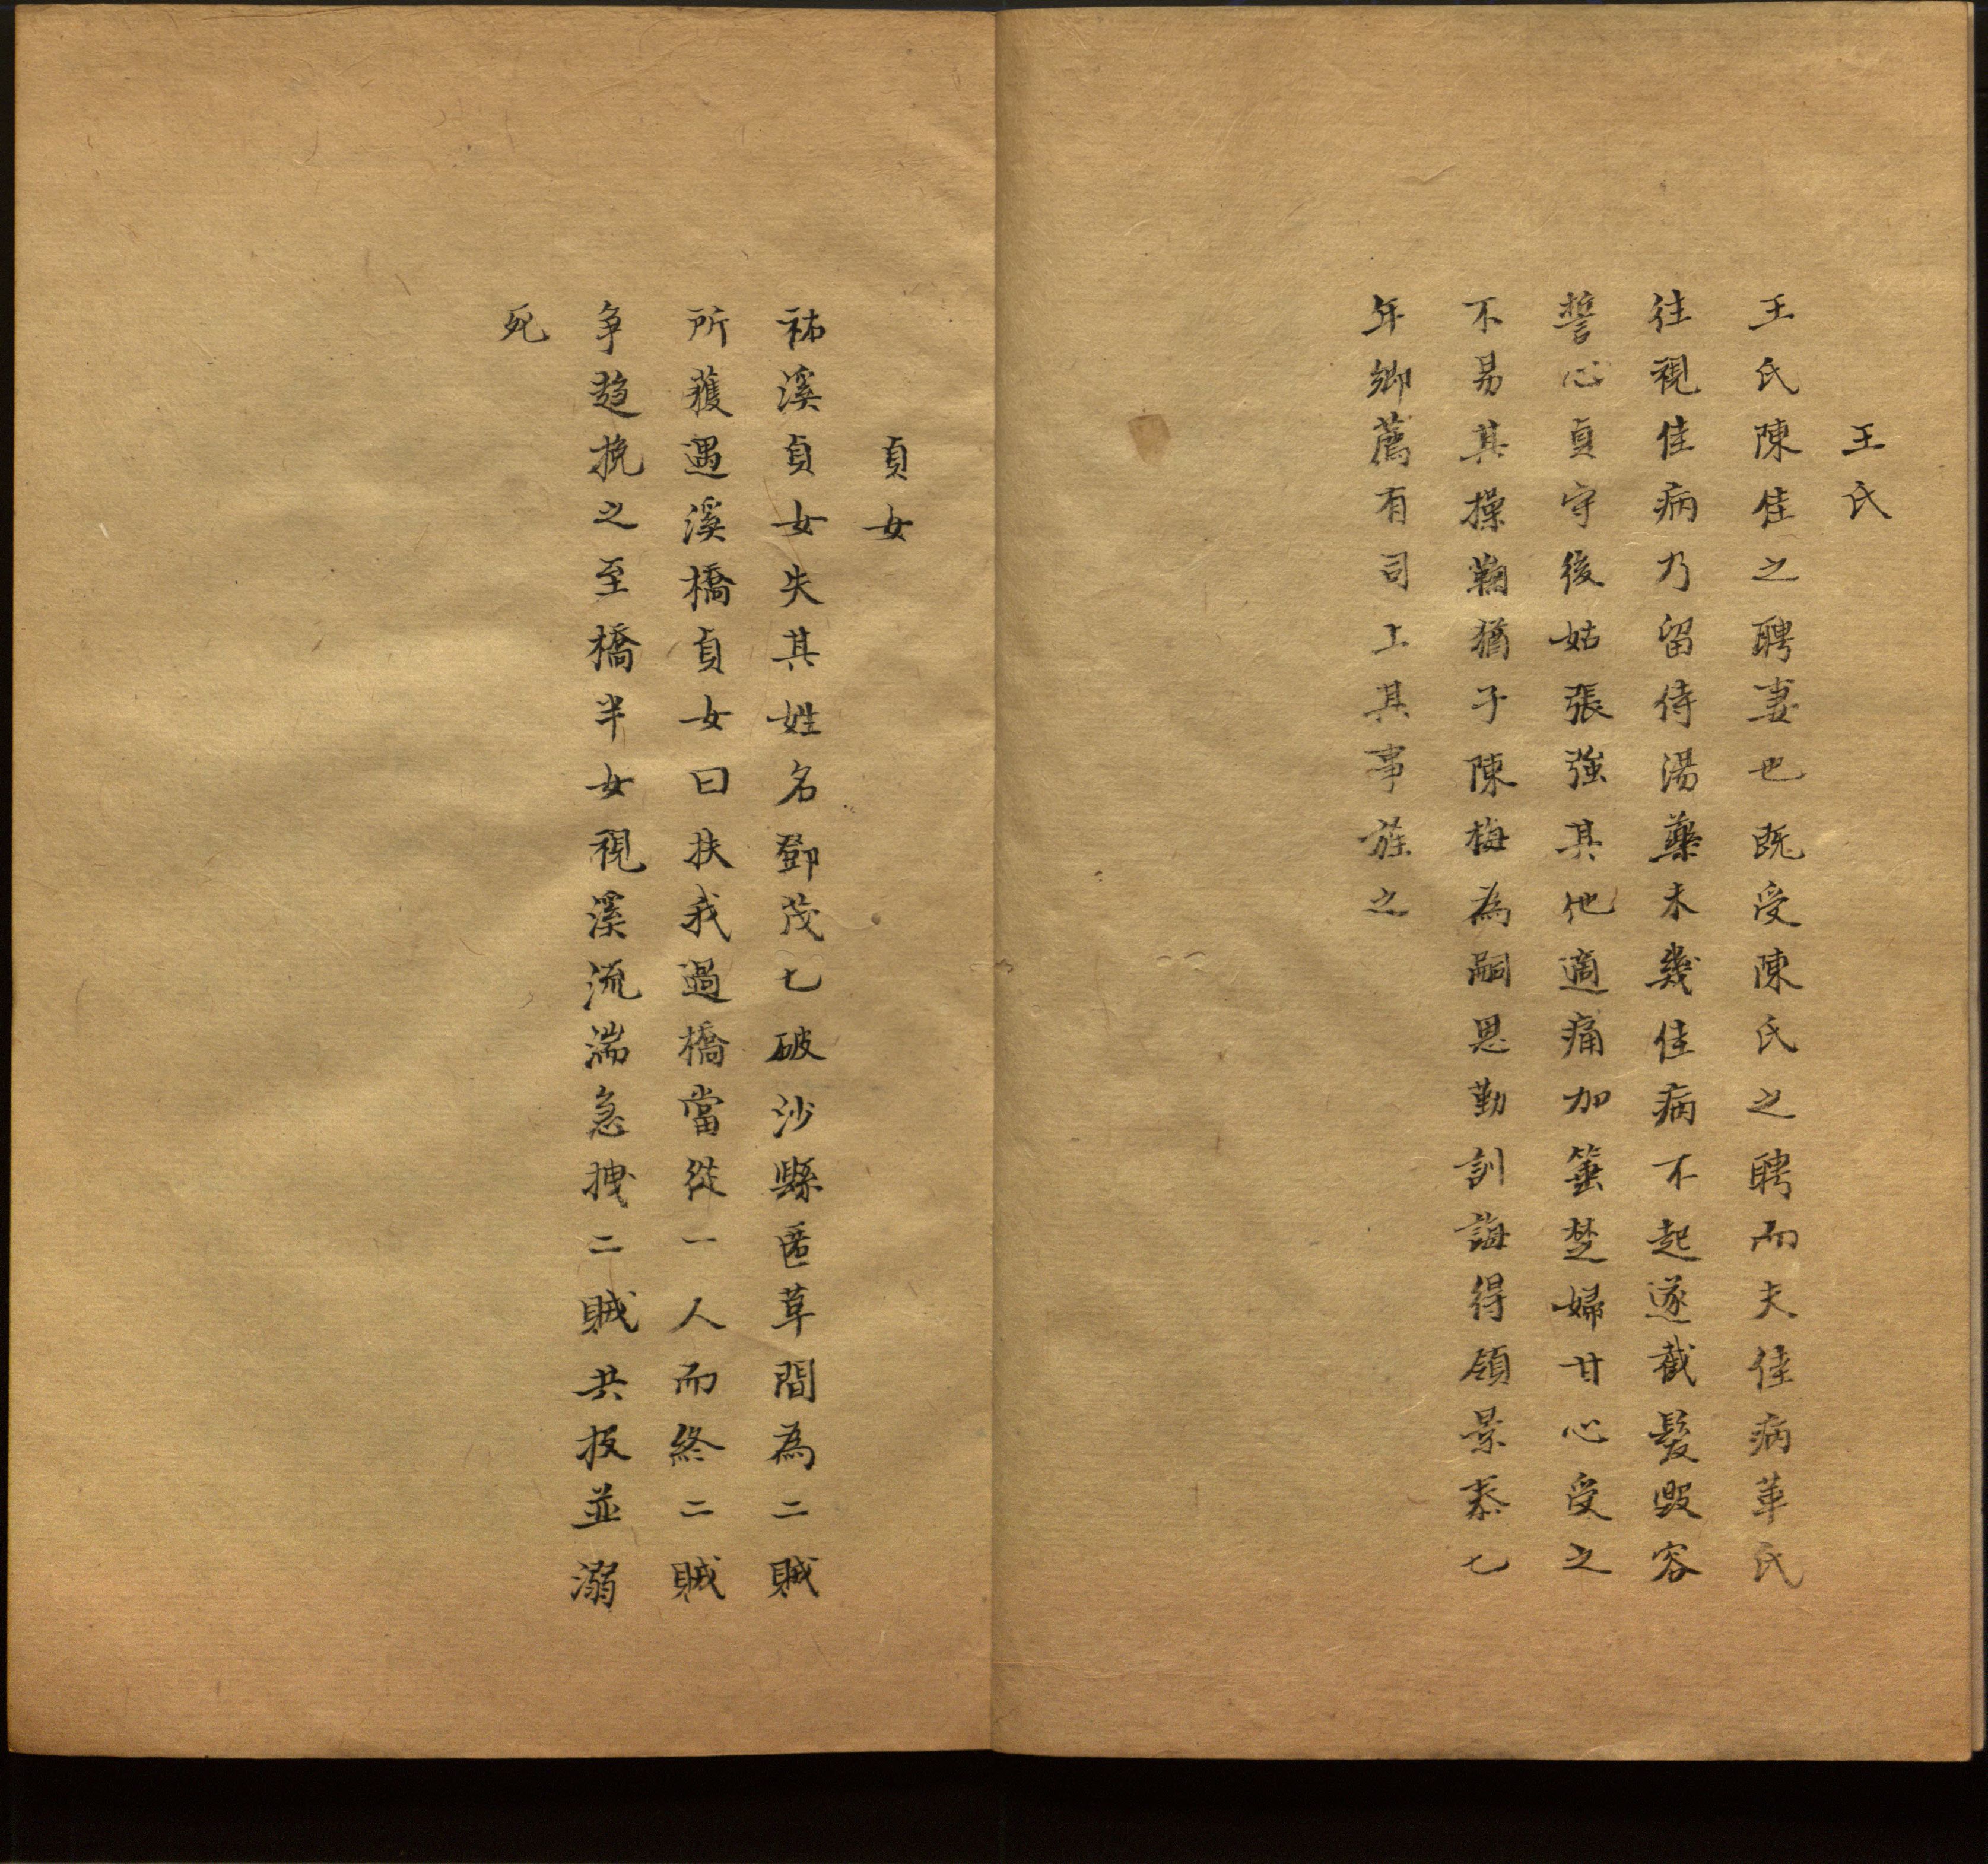 王氏
王氏陳佳之聘妻也既受陳氏之聘而夫佳病革氏
往視佳病乃留侍湯藥未幾佳病不起遂截髮毀容
誓心貞守後姑張強其他適痛加箠楚婦甘心受之
不易其操鞠猶子陳梅為嗣恩勤訓誨得領景泰七
年鄉薦有司上其事旌之
貞女
祐溪貞女失其姓名鄧茂七破沙縣匿草間為二賊
所獲遇溪橋貞女曰扶我過橋當從一人而終二賊
争趋挽之至橋半女視溪流湍急拽二賊共投並溺
死